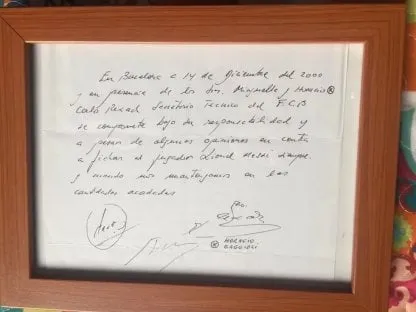 En Barcelona a 14 de Diciembre del 2000
y en presencia de los Srs. Minguella y Horacio ®
Carles Rexach Secretario Técnico del F.C.B
se compromete bajo su responsabilidad y
a pesar de algunas opiniones en contra
a fichar al jugador Lionel Messi siempre
y cuando nos mantengamos en las
cantidades acordadas
® HORACIO
GAGGIOLI